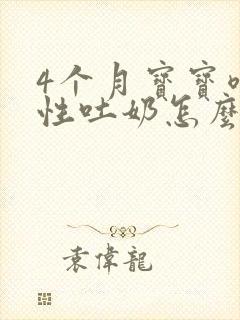 4个月寶寶
性吐奶怎麼
袁偉龍